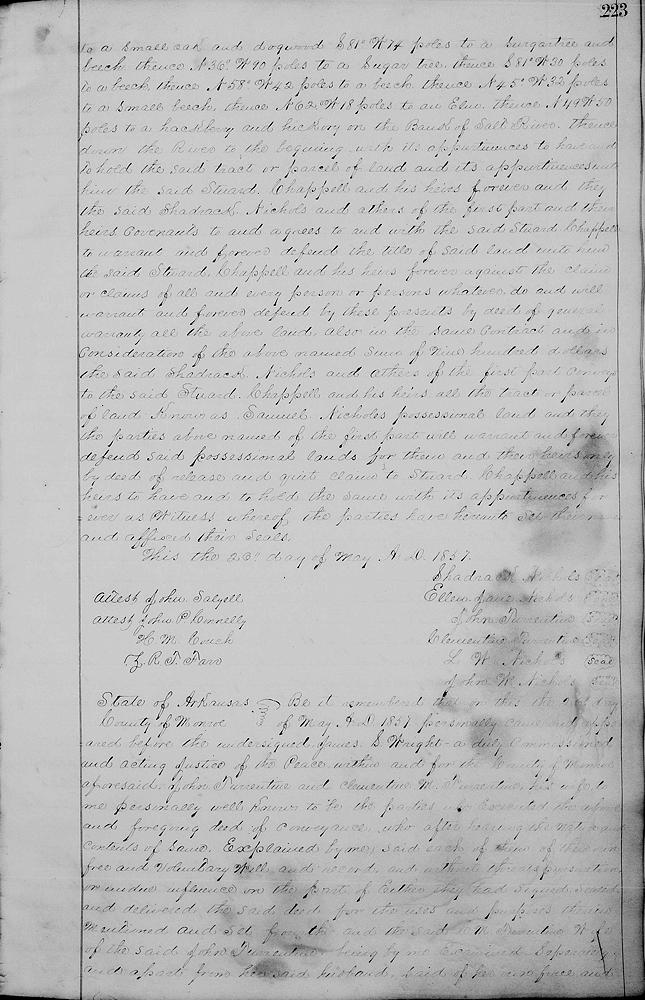 223
to a small oak and dogwood S81° W74 poles to a surgartree and
beech thence N36° W70 poles to a Sugar tree thence S81° W30 poles
to a beech thence N58° W42 poles to a beech thence N45° W32 poles
to a small beech, thence N62 W18 poles to an Elm. thence N49 W50
poles to a hackbery and hickory on the Bank of Salt River. thence
down the River to the begining with its appurtinences to have and
to hold the said tract or parcel of land and its appurtinences unto
him the said Stuard. Chappell and his heirs forever and they
the said Shadrack. Nichols and athers of the first part and their
heirs Covenants to and agrees to and with the said Stuard Chappell
to warrant and forever defend the title of said land unto him
the said Stuard. Chappell and his heirs forever against the claim
or claims of all and every person or persons whatever do and will
warrant and forever defend by these presents by deed of general
warranty all the above land. Also in the same Contract and in
Consideration of the above named Sum of Nine hundred dollars
the said Shadrack. Nichols and others of the first part conveys
to the said Stuard. Chappell and his heirs all the tract or parcel
of land Known as Samuel. Nicholes possessional land and they
the parties above named of the first part will warrant and forever
defend said possessional lands for them and their heirs only
by deed of release and quit claim to Stuard. Chappell and his
heirs to have and to hold the same with its appurtinences for
=ever as Witness whereof the parties have hereunto Set their
and affixed their Seals.
This the 23° day of May A.D. 1857.
Shadrack Nichols Seal
Attest John Salyell Ellen Jane Nichols Seal
attest John P Connelly John Turrentine Seal
H. M. Couch Clementine Turrentine Seal
Z. R. T. Farr L. W. Nichols Seal
John W. Nichols Seal
State of Arkansas Be it remembered that on this the 2nd day
County of Monroe of May A.D 1857 personally came and app
=ared before the undersigned James. S. Wright a duly Commissioned
and acting Justice of the Peace within and for the County of Monroe
aforesaid. John Turrentine and Clementine M. Turrentine, his wife, to
me personally well Known to be the parties who Executed the
and foregoing deed of Conveyance, who after hearing the
Contents of Same. Explained by me, said each of them of their own
free and Voluntary Will and accord and without threats persuation
or undue influence on the part of Either they had Signed Sealed
and delivered the said deed for the uses and purposes therein
Mentioned and Set forth and the said C. M. Turrentine Wife
of the said John Turrentine being by me Examined Seperately
and apart from her said husband, said of her own free and